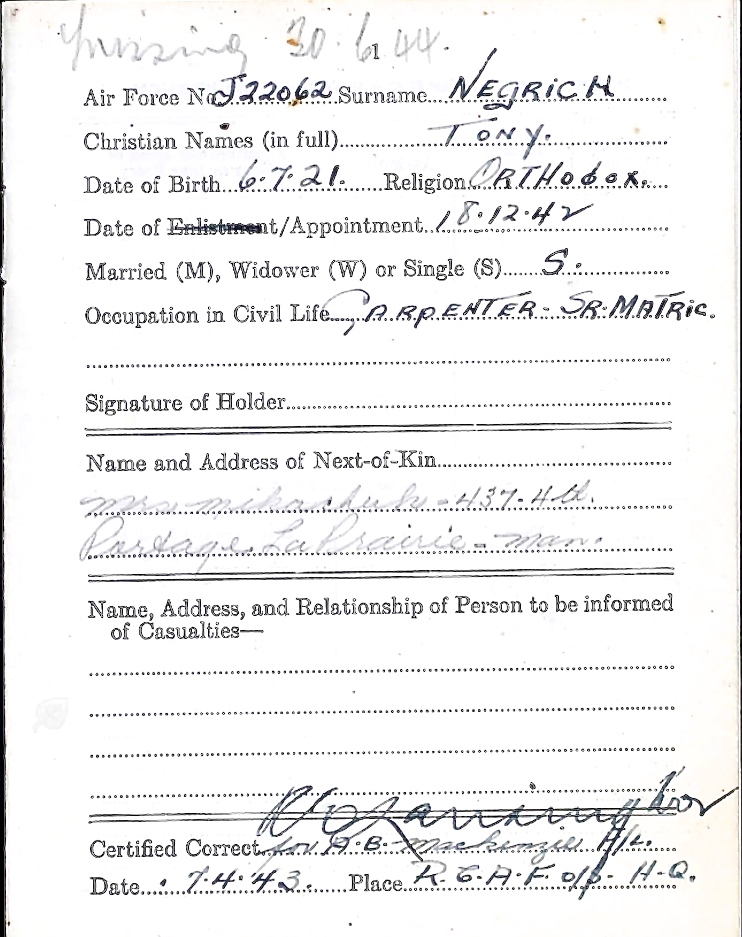 missing 30.6.44.
61
Air Force No. J22062 Surname NEGRICH
Christian Names (in full) TONY.
Date of Birth 6.7.21. Religion ORTHODOX.
Date of Enlistment/Appointment 18.12.42
Married (M), Widower (W) or Single (S) S.
Occupation in Civil Life CARPENTER - SR. MATRIC.
Signature of Holder
Name and Address of Next-of-Kin
Mrs Mikachuk - 437-4th.
Portage La Prairie - Man.
Name, Address, and Relationship of Person to be informed
of Casualties—
Certified Correct for A.B. Mackenzie F/L.
Date 7.4.43. Place R.C.A.F. o/s. H.Q.